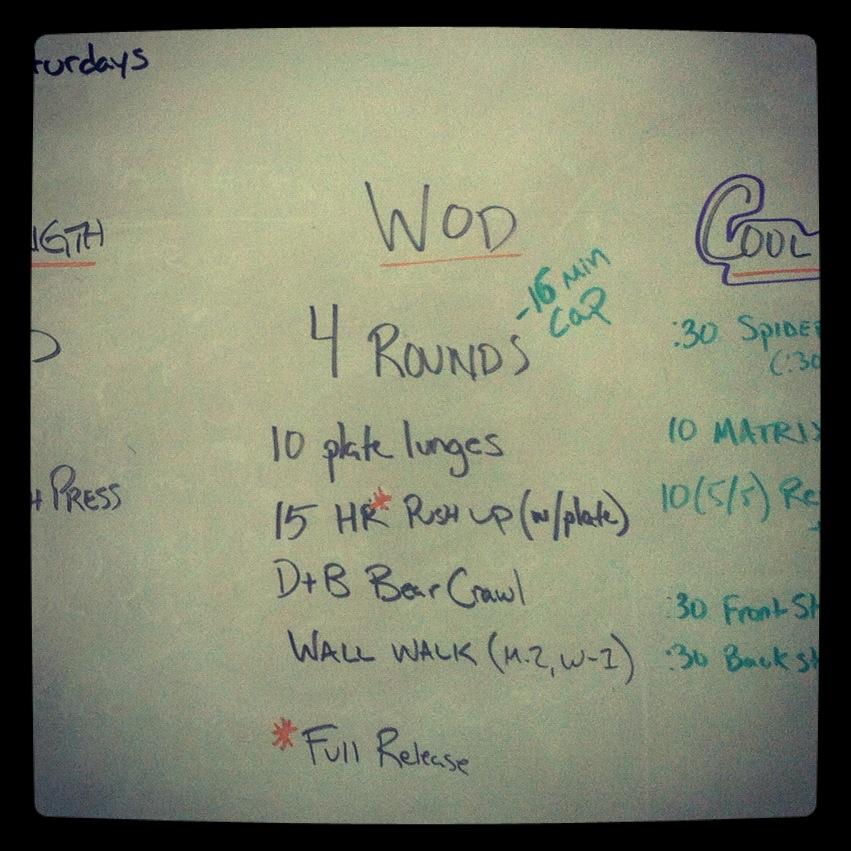 WOD
-16 Min
Cap
4 ROUNDS
10 plate lunges
15 HR* PUSH UP (w/plate)
D+B Bear Crawl
WALL WALK (M-2, W-1)
*Full Release
COOL
:30 SPIDE
(:30
10 MATRIX
10 (5/5) Re
:30 Front St
:30 Back st
turdays
NGTH
PRESS